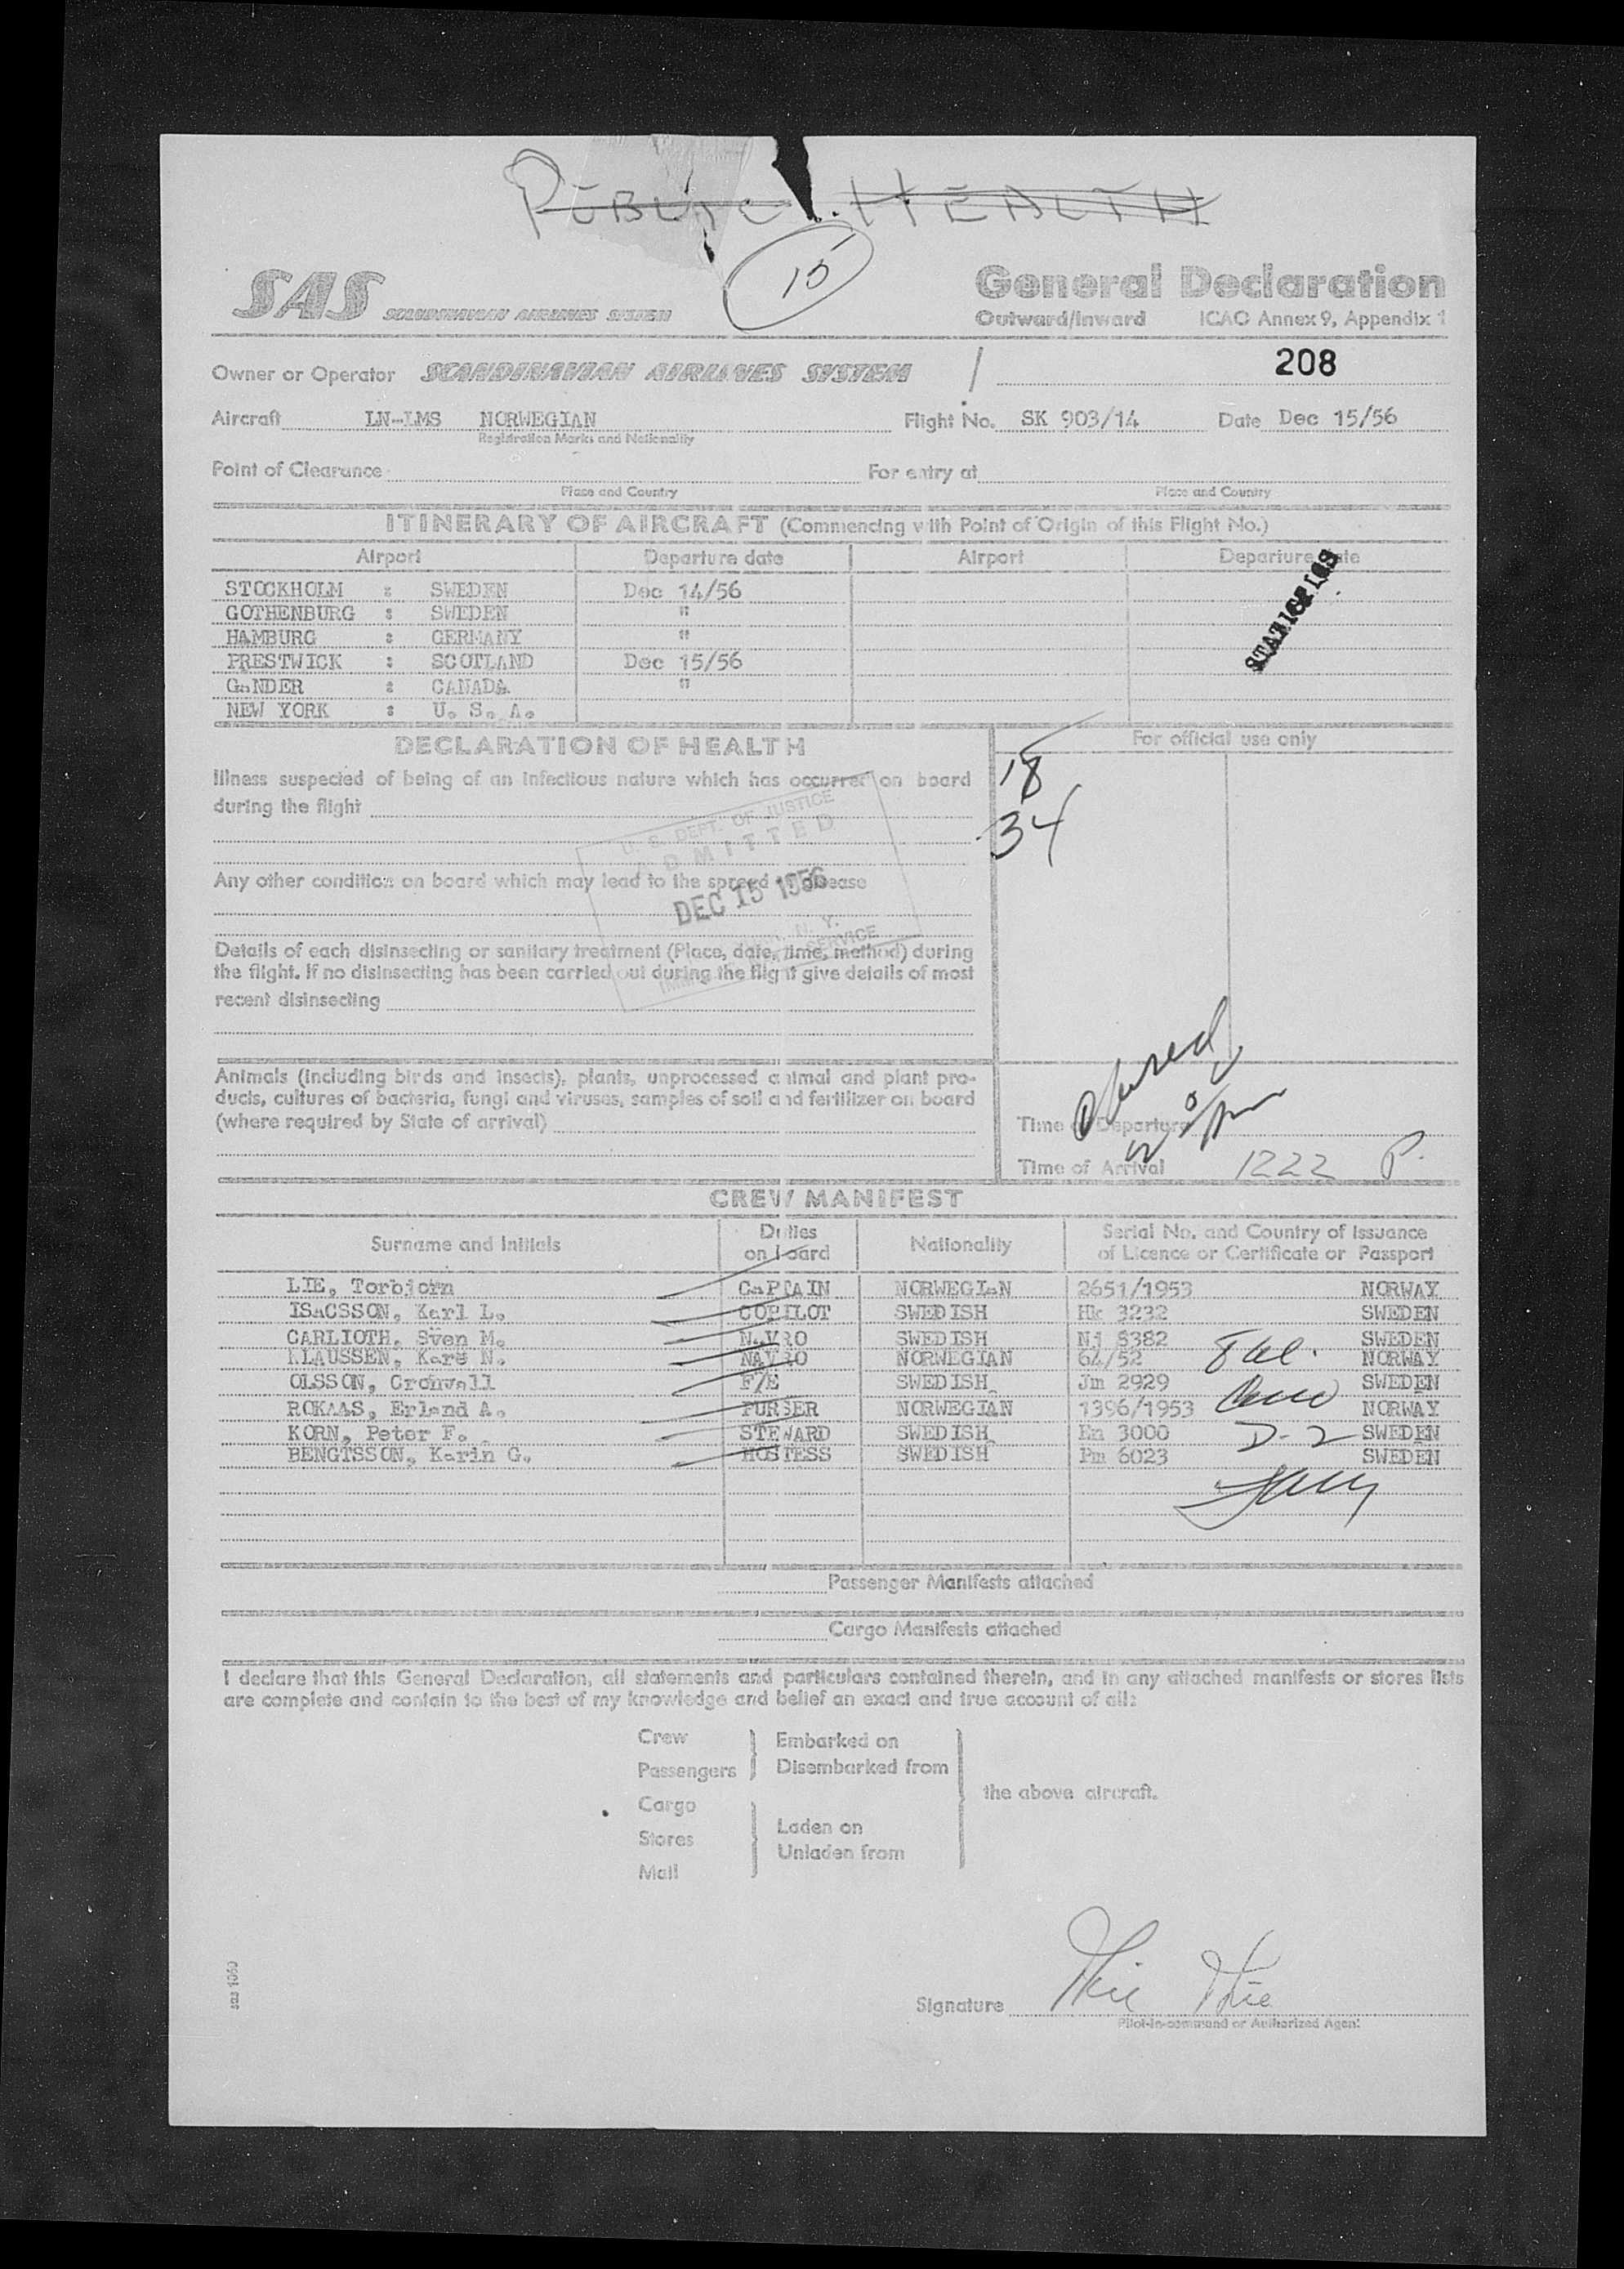 PUBLIC HEALTH
15
SAS SCANDINAVIAN AIRLINES SYSTEM
General Declaration
Outward/Inward ICAO Annex 9, Appendix 1
208
Owner or Operator SCANDINAVIAN AIRLINES SYSTEM
Aircraft LN-LMS NORWEGIAN Flight No. SK 903/14 Date Dec 15/56
Registration Marks and Nationality
Point of Clearance For entry at
Place and Country Place and Country
ITINERARY OF AIRCRAFT (Commencing with Point of Origin of this Flight No.)
Airport Departure date Airport Departure date
STATISTICS
STOCKHOLM : SWEDEN Dec 14/56
GOTHENBURG : SWEDEN "
HAMBURG : GERMANY "
PRESTWICK : SCOTLAND Dec 15/56
GANDER : CANADA "
NEW YORK : U. S. A.
DECLARATION OF HEALTH
For official use only
18
34
Illness suspected of being of an infectious nature which has occurred on board
during the flight
U. S. DEPT. OF JUSTICE
ADMITTED
DEC 15 1956
N. Y.
SERVICE
Any other condition on board which may lead to the spread of disease
Details of each disinsecting or sanitary treatment (Place, date, time, method) during
the flight. If no disinsecting has been carried out during the flight give details of most
recent disinsecting
Animals (including birds and insects), plants, unprocessed animal and plant pro-
ducts, cultures of bacteria, fungi and viruses, samples of soil and fertilizer on board
(where required by State of arrival)
Time of Departure
Time of Arrival 1222 P.
CREW MANIFEST
Surname and Initials Duties on board Nationality Serial No. and Country of Issuance of Licence or Certificate or Passport
LIE, Torbjorn CAPTAIN NORWEGIAN 2651/1953 NORWAY
ISACSSON, Karl L. COPILOT SWEDISH Hk 3232 SWEDEN
CARLIOTH, Sven M. NAVRO SWEDISH Nj 8382 SWEDEN
KLAUSSEN, Kare N. NAVRO NORWEGIAN 64/52 NORWAY
OLSSON, Cronvall F/E SWEDISH Jm 2929 SWEDEN
ROKAAS, Erland A. PURSER NORWEGIAN 1396/1953 NORWAY
KORN, Peter F. STEWARD SWEDISH En 3000 D-2 SWEDEN
BENGTSSON, Karin G. HOSTESS SWEDISH Pm 6023 SWEDEN
Passenger Manifests attached
Cargo Manifests attached
I declare that this General Declaration, all statements and particulars contained therein, and in any attached manifests or stores lists
are complete and contain to the best of my knowledge and belief an exact and true account of all:
Crew
Passengers
Embarked on
Disembarked from
Cargo
Stores
Mail
Laden on
Unladen from
the above aircraft.
Signature
Pilot-in-command or Authorized Agent
SAS 1050